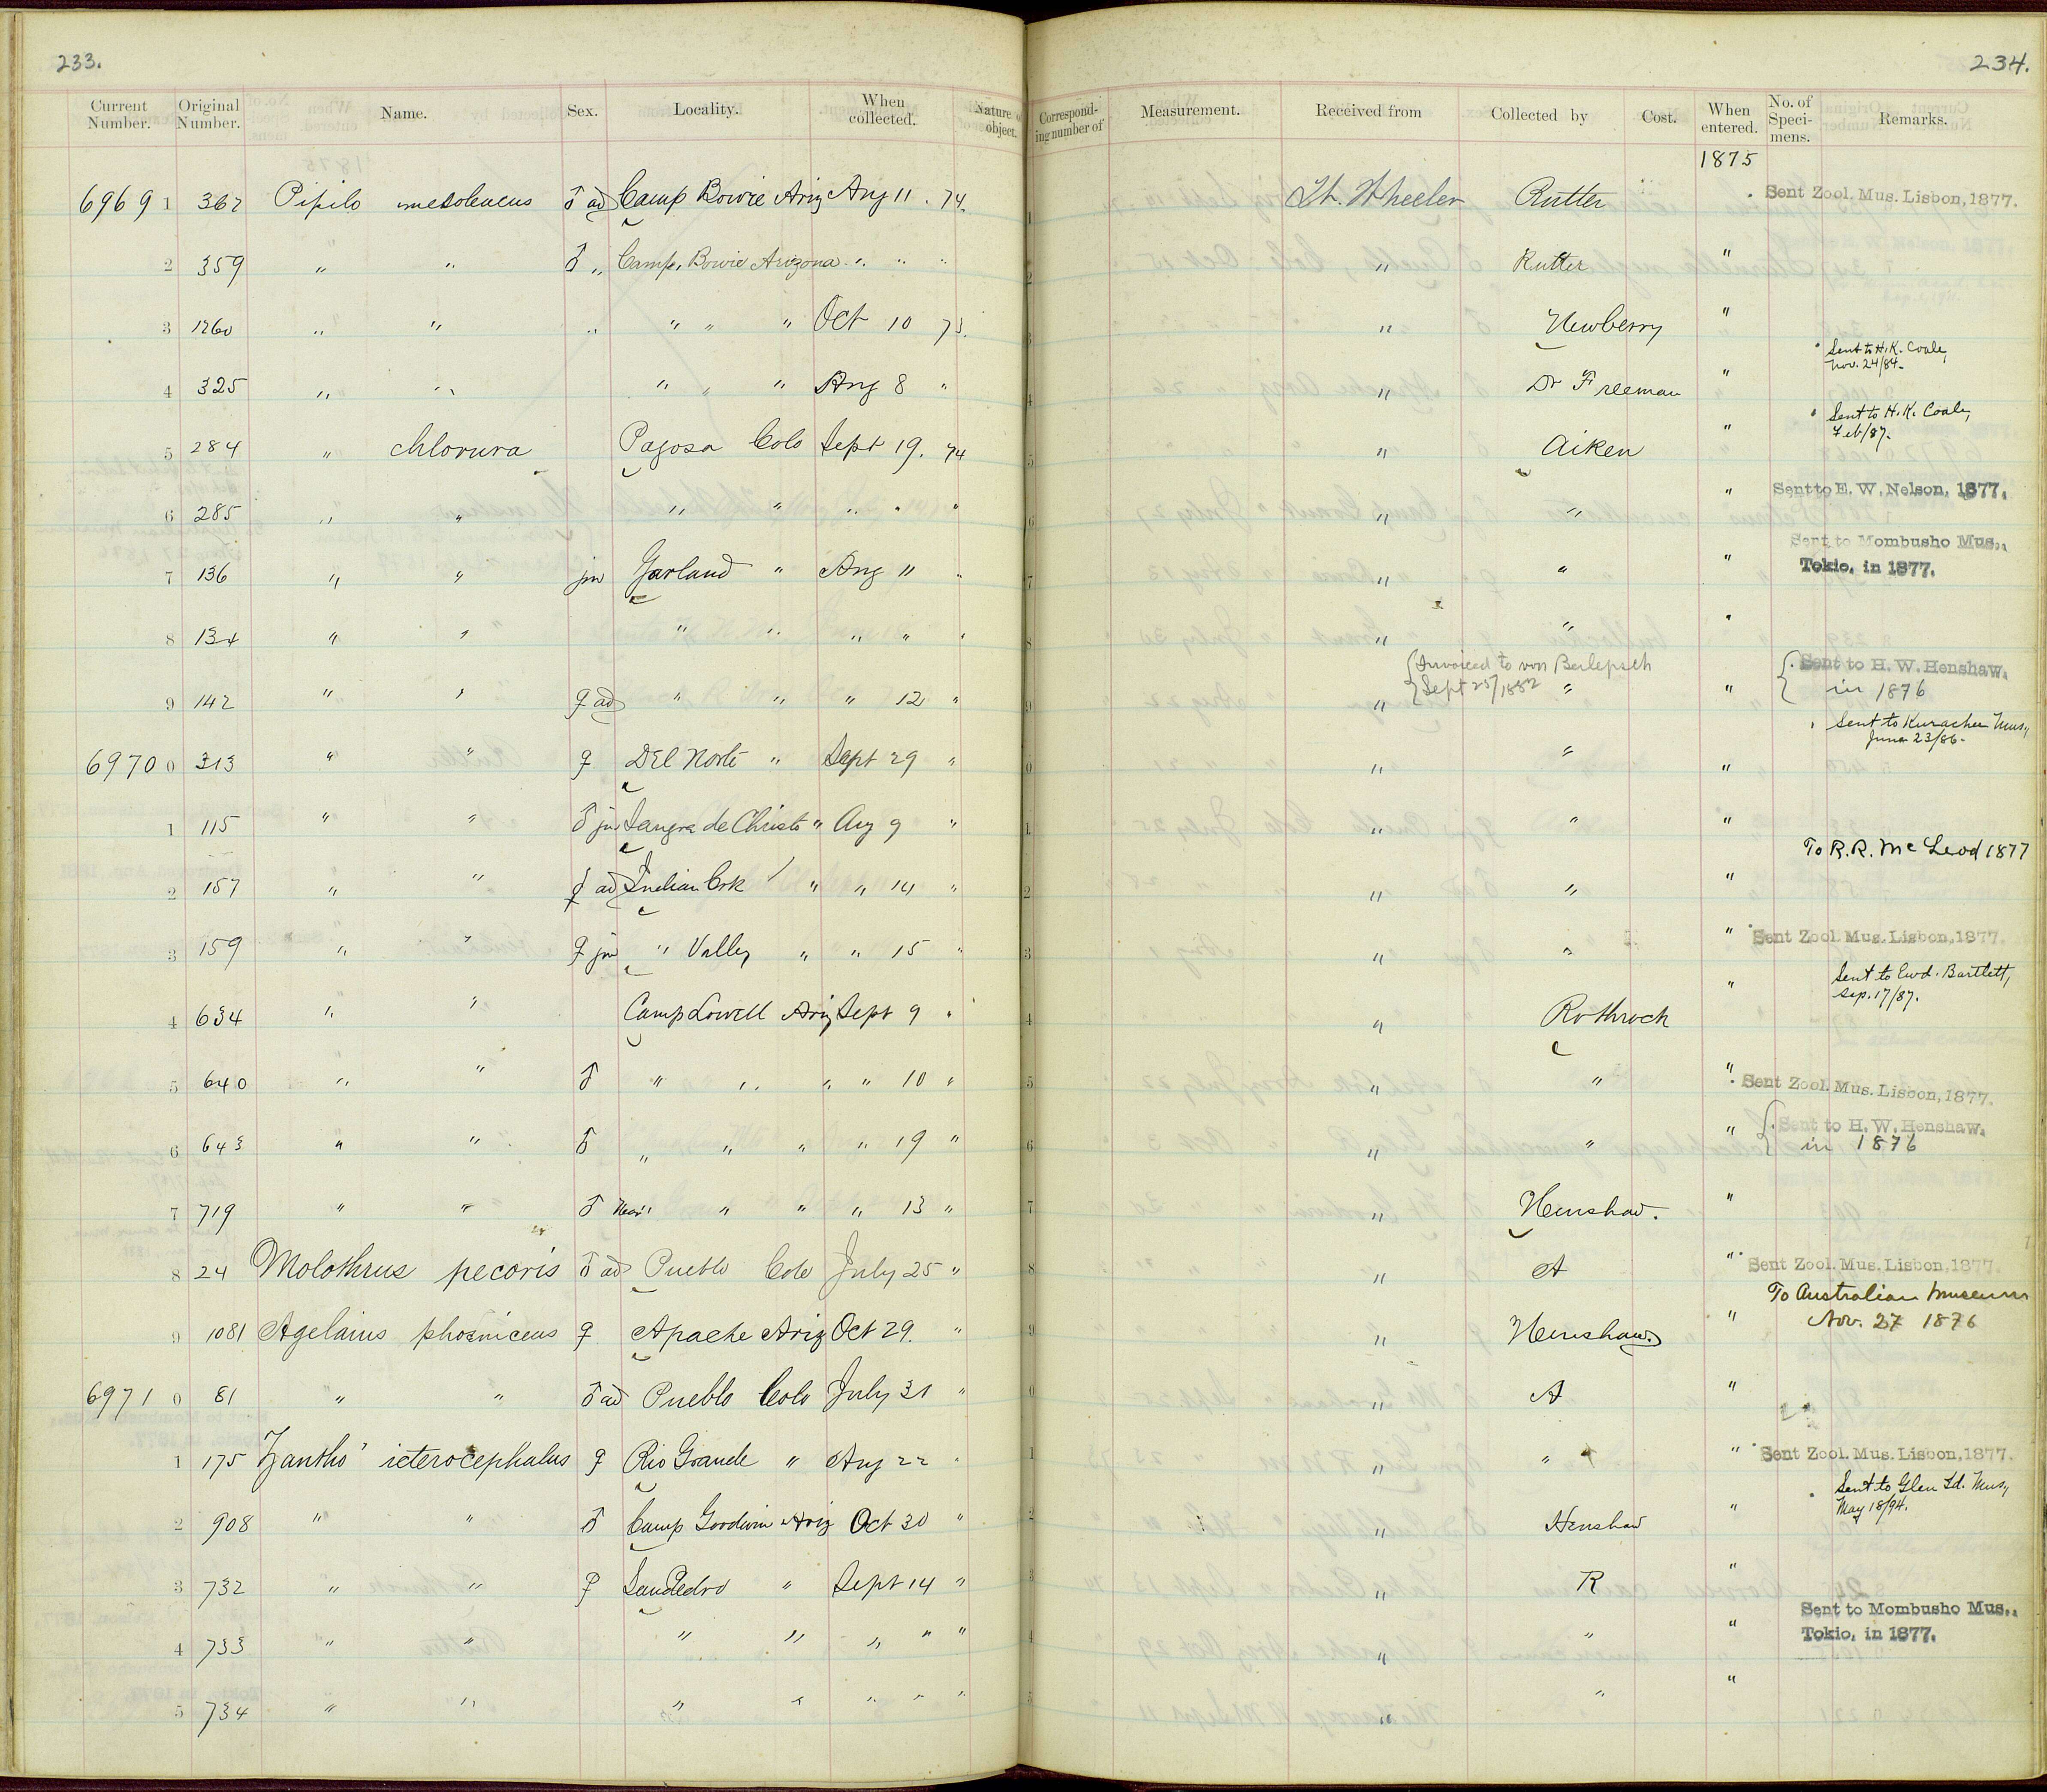 233.
234.
Current Number. Original Number. Name. Sex. Locality. When collected. Nature of object. Correspond- ing number of Measurement. Received from Collected by Cost. When entered. No. of Speci- mens. Remarks.
1875
6969 1 362 Pipilo mesoleucus ♂ ad Camp Bowie Ariz Aug 11. 74. 1 Lt. Wheeler Rutter Sent Zool. Mus. Lisbon, 1877.
2 359 " " ♂ " Camp, Bowie Arizona " " " 2 " Rutter "
3 1260 " " " " " " Oct 10 73. 3 " Newberry "
4 325 " " " " " Aug 8 " 4 " Dr Freeman " Sent to H.K. Coale, Nov. 24/84.
5 284 " chlorura Pagosa Colo Sept 19. 74 5 " Aiken " Sent to H.K. Coale, Feb/87.
6 285 " " " " " " " 6 " " " Sent to E. W. Nelson, 1877.
7 136 " " juv Garland " Aug 11 " 7 " " " Sent to Mombusho Mus., Tokio, in 1877.
8 134 " " " " " " " 8 " " "
{Invoiced to von Berlepsch Sept 25/1882
9 142 " " ♀ ad " " " 12 " 9 " " " { Sent to H. W. Henshaw. in 1876
6970 0 313 " " ♀ Del Norte " Sept 29 " 0 " " " Sent to Kurachee Mus, June 23/86.
1 115 " " ♂ juv Sangre de Christo " Aug 9 " 1 " " "
2 157 " " ad Indian Crk " " 14 " 2 " " " To R. R. McLeod 1877
3 159 " " ♀ juv " Valley " " 15 " 3 " " " Sent Zool. Mus. Lisbon, 1877.
4 634 " " Camp Lowell Ariz Sept 9 " 4 " Rothrock " Sent to Ewd. Bartlett, Sep. 17/87.
5 640 " " ♂ " " " " 10 " 5 " " " Sent Zool. Mus. Lisbon, 1877.
6 643 " " ♂ " " " " 19 " 6 " " " { Sent to H. W. Henshaw. in 1876
7 719 " " ♂ Near " " " " 13 " 7 " Henshaw. "
8 24 Molothrus pecoris ♂ ad Pueblo Colo July 25 " 8 " A " Sent Zool. Mus. Lisbon, 1877.
9 1081 Agelaius phoeniceus ♀ Apache Ariz Oct 29. " 9 " Henshaw. " To Australian Museum Nov. 27 1876
6971 0 81 " " ♂ ad Pueblo Colo July 31 " 0 " A "
1 175 Xantho' icterocephalus ♀ Rio Grande " Aug 22 " 1 " " " Sent Zool. Mus. Lisbon, 1877.
2 908 " " ♂ Camp Goodwin Ariz Oct 30 " 2 " Henshaw " Sent to Glen Id. Mus, May 18/94.
3 732 " " ♀ San Pedro " Sept 14 " 3 " R "
4 733 " " " " " " " 4 " " " Sent to Mombusho Mus., Tokio, in 1877.
5 734 " " " " " " " 5 " " "